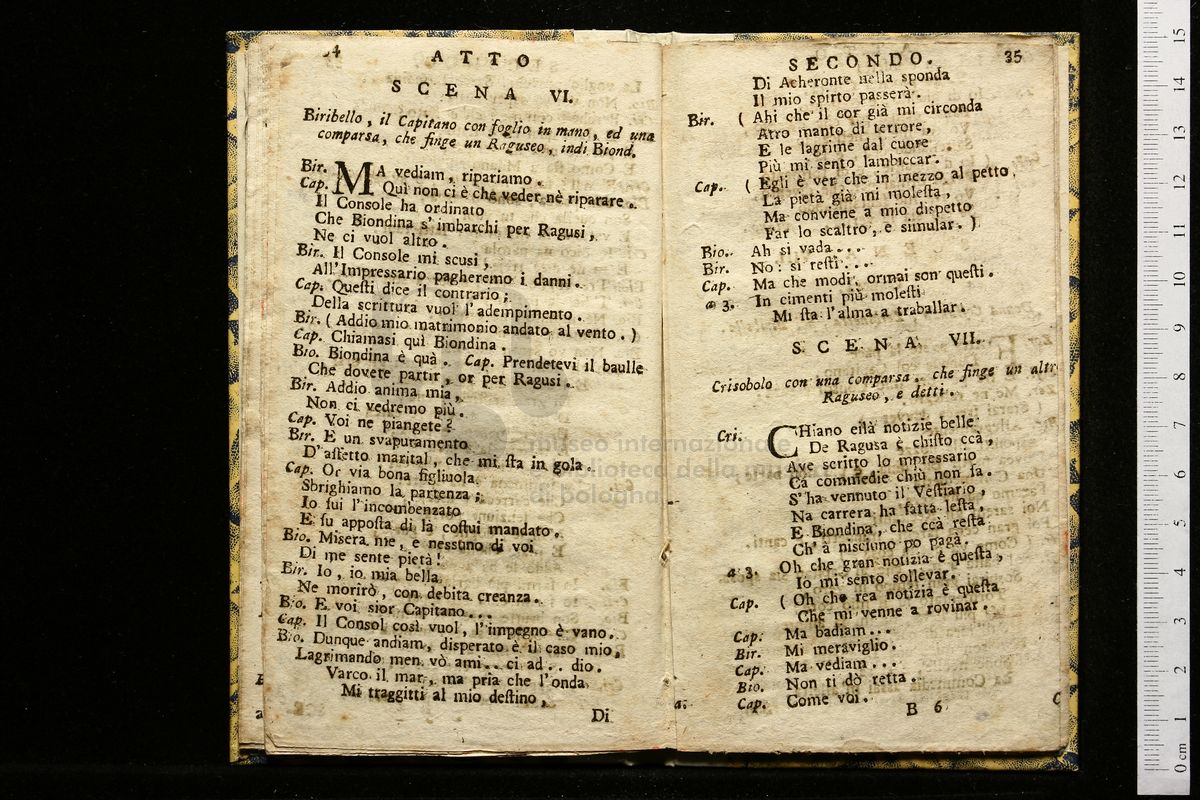 34
ATTO
SCENA VI.
Biribello, il Capitano con foglio in mano, ed una
comparsa, che finge un Raguseo, indi Biond.
Bir. MA vediam, ripariamo.
Cap. Quì non ci è che veder nè riparare.
Il Console ha ordinato
Che Biondina s'imbarchi per Ragusi,
Ne ci vuol altro.
Bir. Il Console mi scusi,
All'Impressario pagheremo i danni.
Cap. Questi dice il contrario;
Della scrittura vuol l'adempimento.
Bir. (Addio mio matrimonio andato al vento.)
Cap. Chiamasi quì Biondina.
Bio. Biondina è quà. Cap. Prendetevi il baulle
Che dovete partir, or per Ragusi.
Bir. Addio anima mia,
Non ci vedremo più.
Cap. Voi ne piangete?
Bir. E un svapuramento
D'affetto marital, che mi sta in gola.
Cap. Or via bona figliuola
Sbrighiamo la partenza;
Io fui l'incombenzato
E fu apposta di là costui mandato.
Bio. Misera me, e nessuno di voi
Di me sente pietà!
Bir. Io, io mia bella
Ne morirò, con debita creanza.
Bio. E voi sior Capitano...
Cap. Il Consol così vuol, l'impegno è vano.
Bio. Dunque andiam, disperato è il caso mio,
Lagrimando men vò ami.. ci ad.. dio.
Varco il mar, ma pria che l'onda
Mi traggitti al mio destino,
Di
SECONDO. 35
Di Acheronte nella sponda
Il mio spirto passerà.
Bir. ( Ahi che il cor già mi circonda
Atro manto di terrore,
E le lagrime dal cuore
Più mi sento lambiccar.
Cap. ( Egli è ver che in mezzo al petto
La pietà già mi molesta,
Ma conviene a mio dispetto
Far lo scaltro, e simular. )
Bio. Ah si vada...
Bir. No: si resti...
Cap. Ma che modi, ormai son questi.
a 3. In cimenti più molesti
Mi sta l'alma a traballar.
SCENA VII.
Crisobolo con una comparsa, che finge un altro
Raguseo, e detti.
Cri. CHiano eilà notizie belle
De Ragusa è chisto ccà,
Ave scritto lo mpressario
Ca commedie chiù non fa.
S'ha vennuto il Vestiario,
Na carrera ha fatta lesta,
E Biondina, che ccà resta
Ch'à nisciuno po pagà.
a 3. Oh che gran notizia è questa,
Io mi sento sollevar.
Cap. ( Oh che rea notizia è questa
Che mi venne a rovinar.
Cap. Ma badiam...
Bir. Mi meraviglio.
Cap. Ma vediam...
Bio. Non ti dò retta.
Cap. Come voi.
B 6
museo internazionale
e biblioteca della mu
di bologna
0 cm 1 2 3 4 5 6 7 8 9 10 11 12 13 14 15